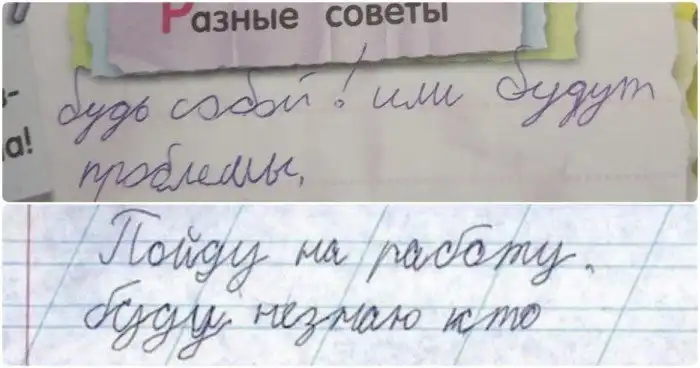 Разные советы
-
а!
будь собой! или будут
проблемы.
Пойду на работу.
буду незнаю кто